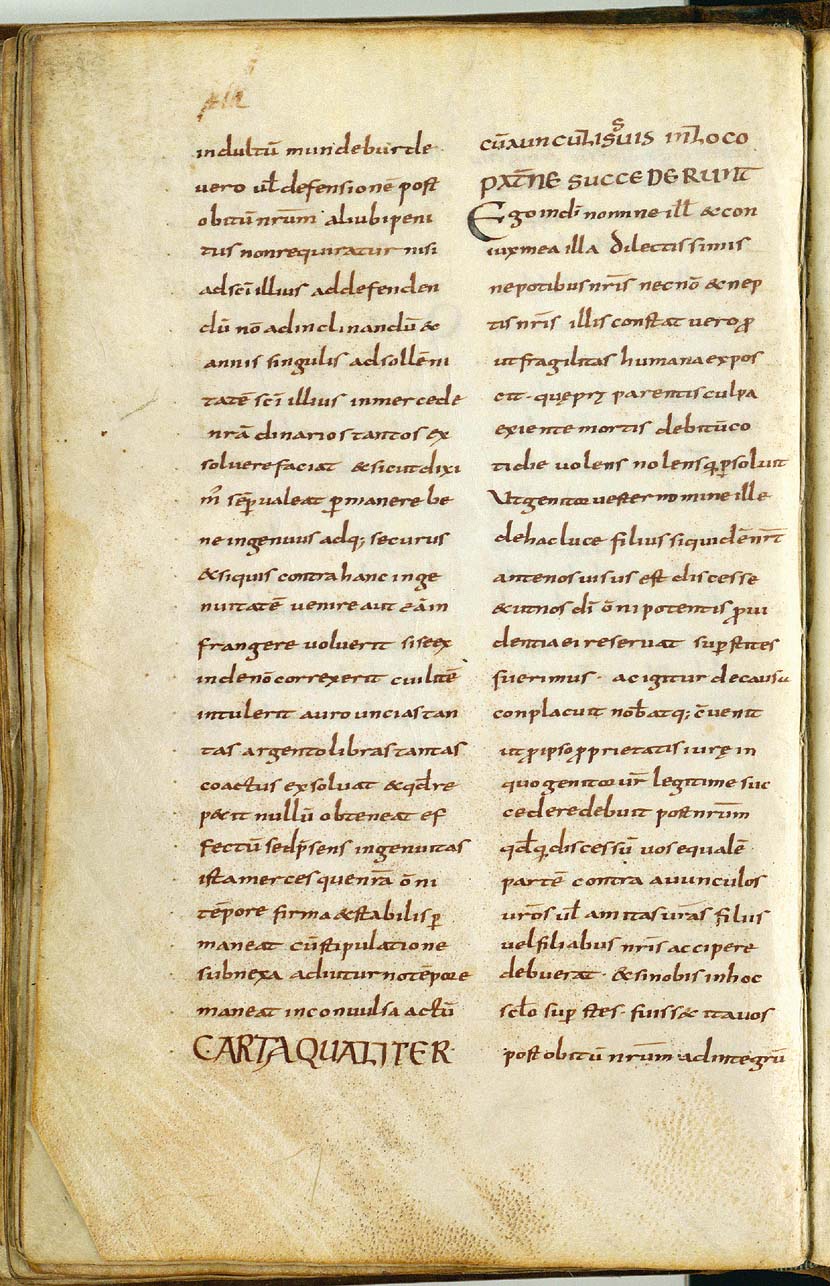 indultū mundeburde
vero ul̄ defensionē post
obitū nr̄um aliubi peni
tus non requiratur nisi
ad sc̄i illius ad defenden
dū nō ad inclinandū &
annis singulis ad sollēni
tatē sc̄i illius in mercede
nr̄ā dinarios tantos ex
solvere faciat & sicut dixi
m̄ sēp valeat ꝑmanere be
ne ingenuus adq; securus
& siquis contra hanc inge
nuitatē venire aut eām
frangere voluerit si se ex
inde nō correxerit cui litē
intulerit auro uncias tan
tas argento libras tantas
coactus exsoluat & qd̄ re
p&it nullū obteneat ef
fectū sed p̄sens ingenuitas
ista merces que nr̄a ōni
tēpore firma & stabilis ꝑ
maneat cū stipulatione
subnexa adiuturno tēpore
maneat inconvulsa actū
CARTA QUALITER
cū avunculis suis in loco
PATR̄NE SUCCEDERUNT
Ego in dī nomine ill̄ & con
iux mea illa dilectissimis
nepotibus nr̄is necnō & nep
tis nr̄is illis constat vero ꝓ
ut fragilitas humana expos
cit · quę pr̄ę parentis culpa
exiente mortis debitū co
tidie volens nolensq, ꝑsoluit
Ut genitor vester nomine ille
de hac luce filius siquidē nr̄
ante nos visus est discesse
& ut nos dī ōnipotentis ꝓvi
dentia ei reservat suꝑstites
fuerimus · ac igitur de causa
conplacuit nob̄ atq; c̄venit
ut ꝓ ipso ꝓprietatis iurę in
quo genitor ur̄ legitime suc
cedere debuit post nr̄um
qd̄q, discessū vos equalē
partē contra avunculos
ur̄os ul̄ amitas ur̄as filius
vel filiabus nr̄is accipere
debuerat · & si nobis in hoc
scl̄o suꝑstes · fuiss& ita vos
post obitū nr̄um ad integrū